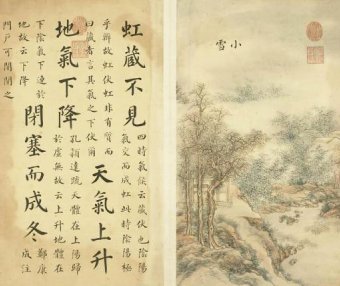 小雪
虹藏不見
四時氣候云藏伏也陰陽
氣交而成虹此時陰陽極
乎辯故虹伏虹非有質而
曰藏者言其氣之下伏爾
天氣上升
地氣下降
孔穎達疏天體在上陽歸
於虛無故云上升地體在
下陰氣下連於
地故云下降
閉塞而成冬
鄭康
成注
門戶可閉閉之